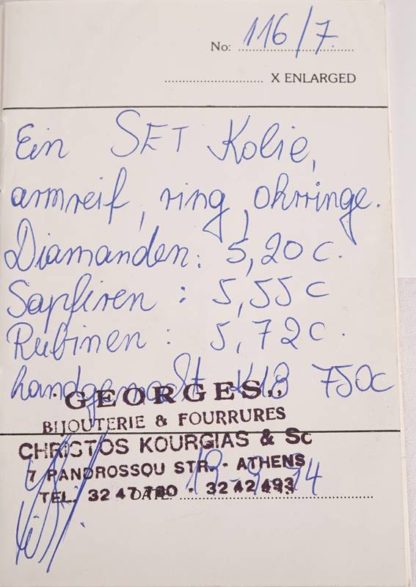 No: 116/7.
X ENLARGED
Ein SET Kolie,
armreif, ring, ohrringe.
Diamanden: 5,20 c.
Sapfiren : 5,55 c
Rubinen : 5,72 c.
handgemacht K18 750c
"GEORGES"
BIJOUTERIE & FOURRURES
CHRISTOS KOURGIAS & Sc
7 PANDROSSOU STR. - ATHENS
TEL. 32 47 780 - 32 42 493
DATE: 94